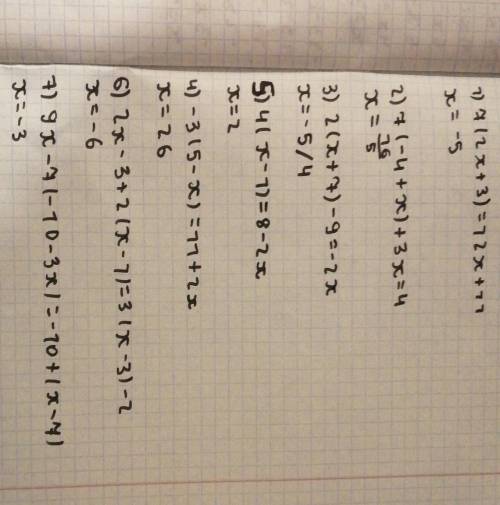 1) 7(2x+3)=12x+11
x=-5
2) 7(-4+x)+3x=4
x=16/5
3) 2(x+7)-9=-2x
x=-5/4
5) 4(x-1)=8-2x
x=2
4) -3(5-x)=11+2x
x=26
6) 2x-3+2(x-1)=3(x-3)-2
x=-6
7) 9x-7(-10-3x)=-10+(x-7)
x=-3